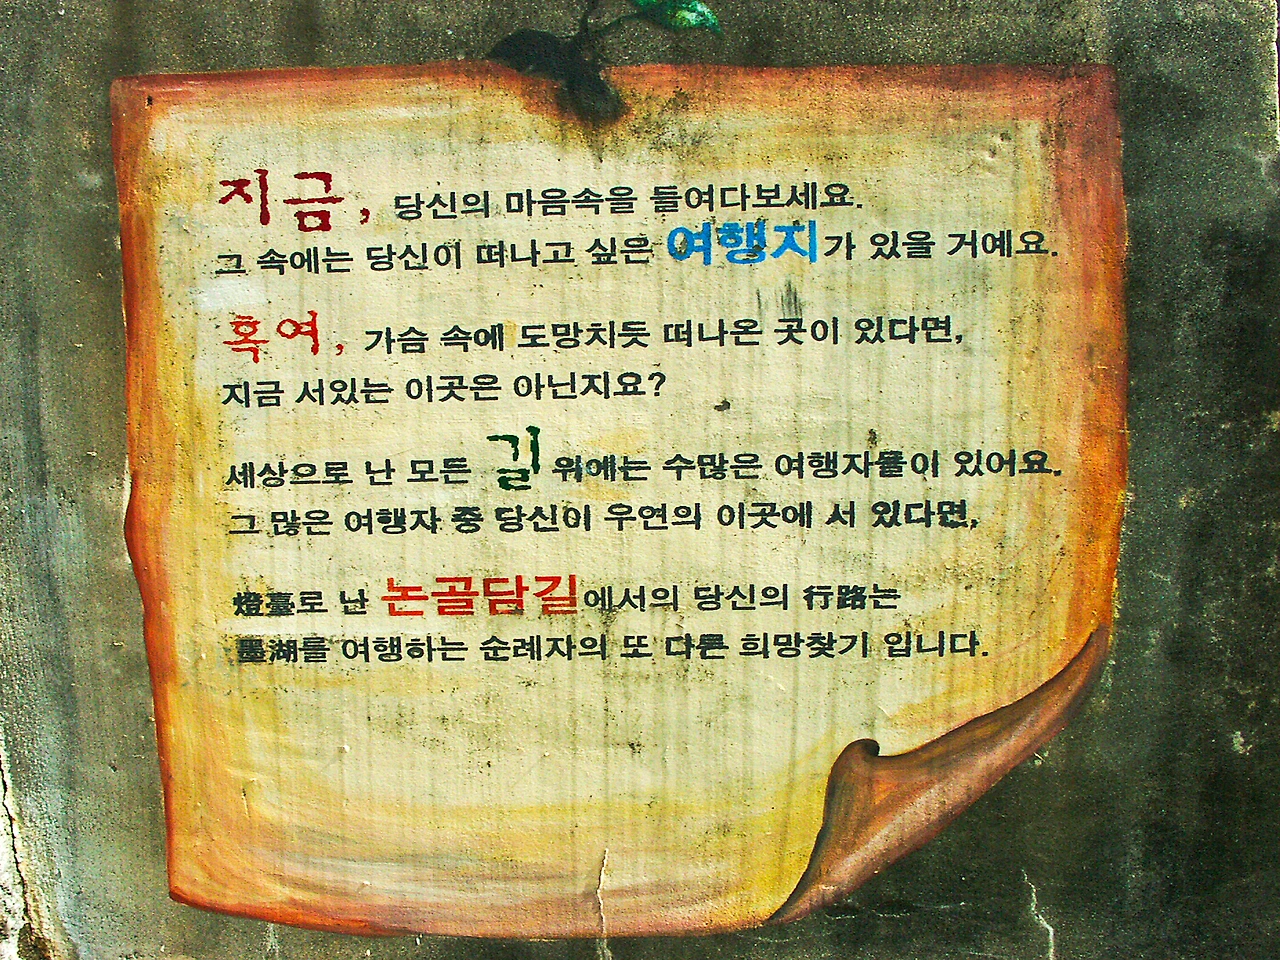 지금, 당신의 마음속을 들여다보세요.
그 속에는 당신이 떠나고 싶은 여행지가 있을 거예요.
혹여, 가슴 속에 도망치듯 떠나온 곳이 있다면,
지금 서있는 이곳은 아닌지요?
세상으로 난 모든 길 위에는 수많은 여행자들이 있어요.
그 많은 여행자 중 당신이 우연의 이곳에 서 있다면,
燈臺로 난 논골담길에서의 당신의 行路는
墨湖를 여행하는 순례자의 또 다른 희망찾기 입니다.